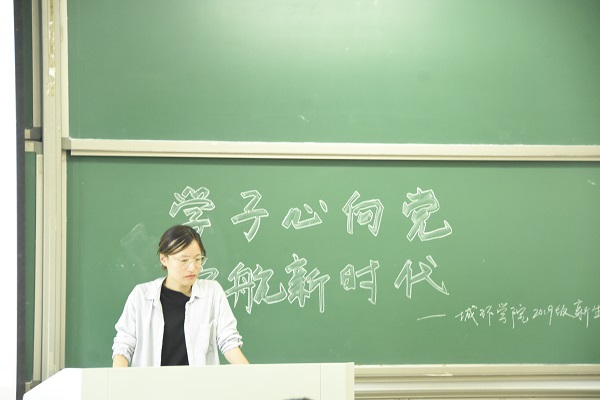 学子心向党
航新时代
—城环学院2019级新生